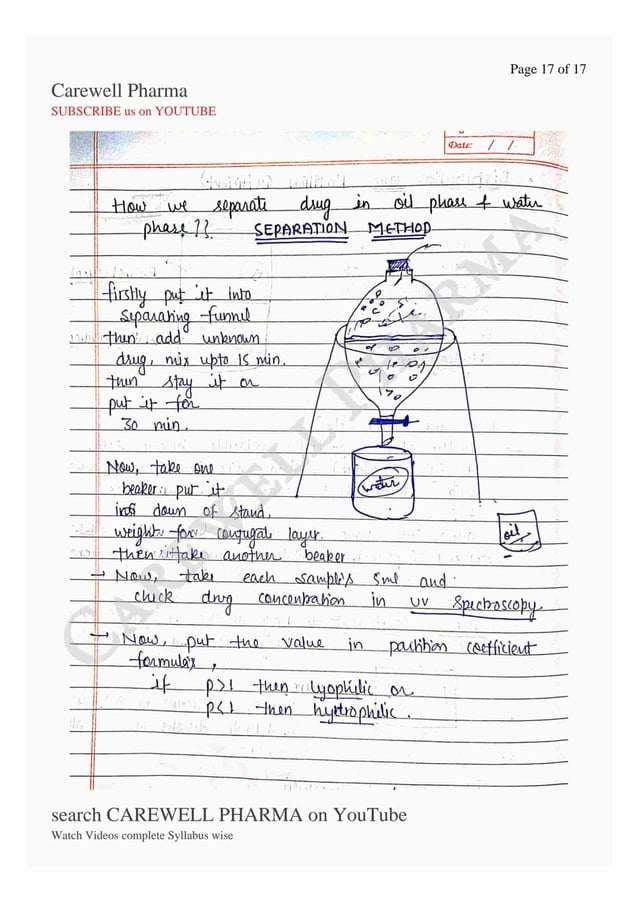 Page 17 of 17
Carewell Pharma
SUBSCRIBE us on YOUTUBE
Date: / /
How we separate drug in oil phase & water
phase?? SEPARATION METHOD
firstly put it into
separating funnel
then add unknown
drug, mix upto 15 min.
then stay it or
put it for
30 min.
Now, take one
beaker put it
down of stand.
weight for conjugal layer.
then take another beaker
water
oil
→ Now, take each sample's 5ml and
check drug concentration in UV Spectroscopy.
→ Now, put the value in partition coefficient
formula's,
if P>1 then lyophilic or
P<1 then hydrophilic.
CAREWELL PHARMA
search CAREWELL PHARMA on YouTube
Watch Videos complete Syllabus wise